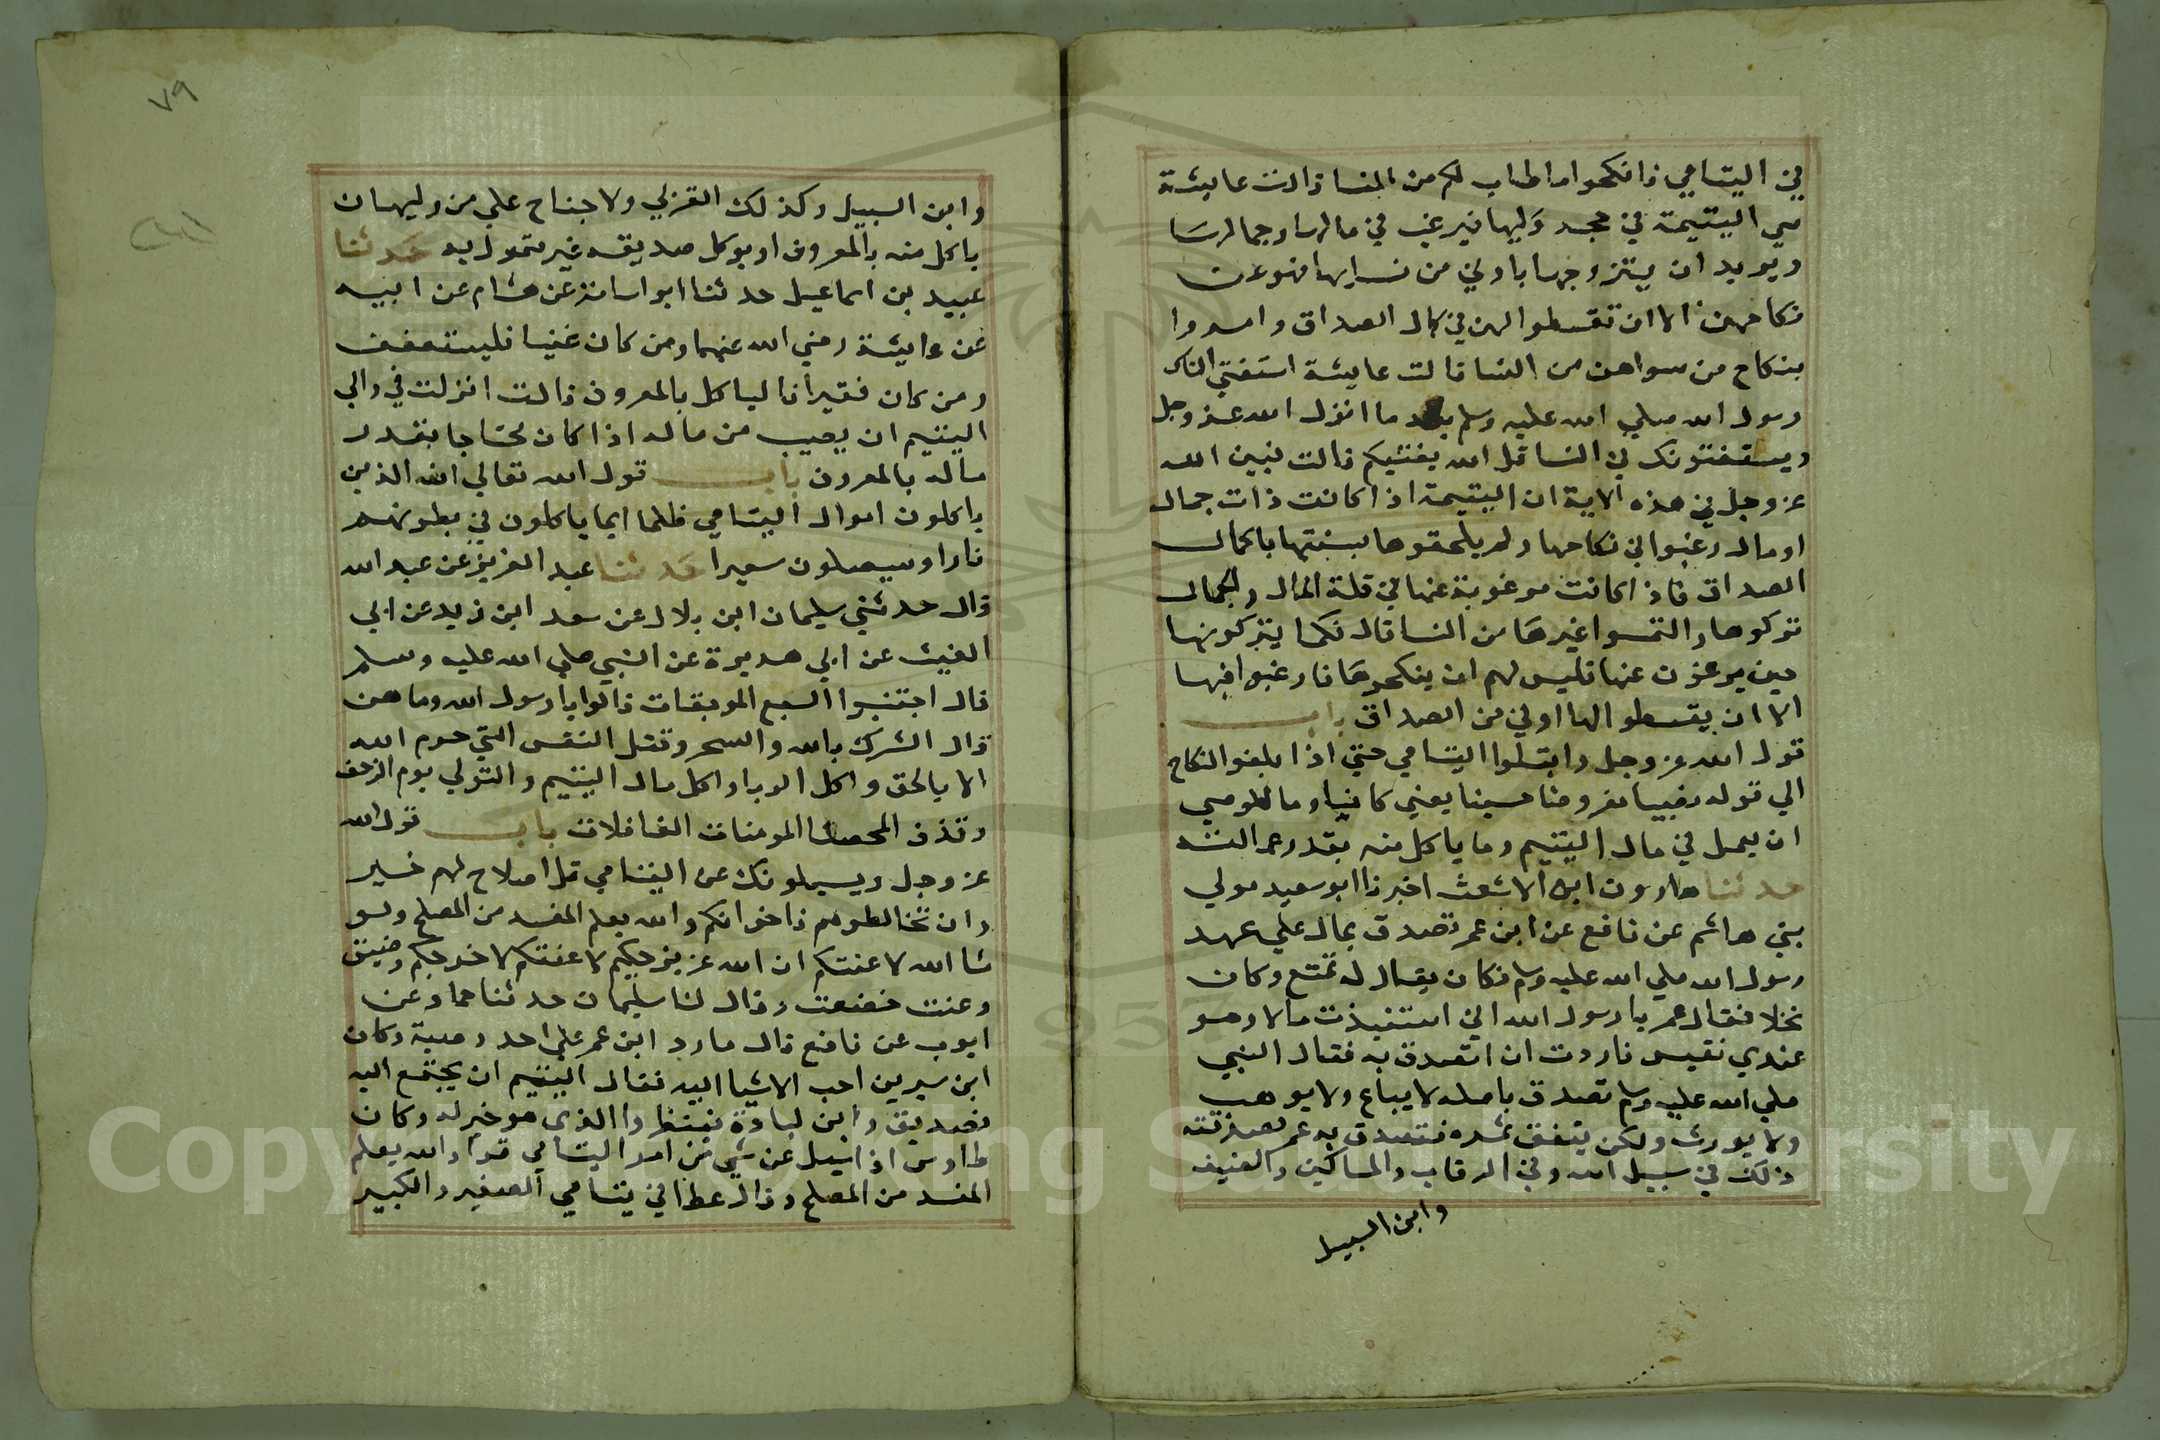 في اليتامي فانكحوا ما طاب لكم من النسا قالت عايشة
هي اليتيمة في حجر وليها فيرغب في مالها وجمالها
ويريد ان يتزوجها بادني من نسايها فنهوا عن
نكاحهن الا ان تقسطوا لهن في كمال الصداق وامروا
بنكاح من سواهن من النسا قالت عايشة استفتي الناس
رسول الله صلي الله عليه وسلم بعد ما انزل الله عز وجل
ويستفتونك في النسا قل الله يفتيكم قالت فبين الله
عز وجل في هذه الاية ان اليتيمة اذا كانت ذات جمال
او مال رغبوا في نكاحها ولم يلحقوها بسنتها باكمال
الصداق فاذا كانت مرغوبة عنها في قلة المال والجمال
تركوها والتمسوا غيرها من النسا قال فكما يتركونها
حين يرغبون عنها فليس لهم ان ينكحوها فارغبوا فيها
الا ان يقسطوا لها اوفي من الصداق باب
قول الله عز وجل وابتلوا اليتامي حتي اذا بلغوا النكاح
الي قوله نصيبا مفروضا حسيبا يعني كافيا وما للوصي
ان يعمل في مال اليتيم وما ياكل منه بقدر عمالته
حدثنا هارون ابن الاشعث اخبرنا ابو سعيد مولي
بني هاشم عن نافع عن ابن عمر تصدق بمال علي عهد
رسول الله صلي الله عليه وسلم فكان يقال له ثمغ وكان
نخلا فقال عمر يا رسول الله اني استفيذت مالا وهو
عندي نفيس فاردت ان اتصدق به فقال النبي
صلي الله عليه وسلم تصدق باصله لا يباع ولا يوهب
ولا يورث ولكن ينفق ثمره فتصدق به عمر بصدقته
ذلك في سبيل الله وفي الرقاب والمساكين والضيف
وابن السبيل
٧٩
وابن السبيل وكذلك القربي ولا جناح علي من وليها ان
ياكل منه بالمعروف او يوكل صديقه غير متمول به حدثنا
عبيد بن اسماعيل حدثنا ابو اسامة عن هشام عن ابيه
عن عايشة رضي الله عنهما ومن كان غنيا فليستعفف
ومن كان فقيرا فالياكل بالمعروف قالت انزلت في والي
اليتيم ان يصيب من ماله اذا كان محتاجا بقدر
ماله بالمعروف باب قول الله تعالي ان الذين
ياكلون اموال اليتامي ظلما انما ياكلون في بطونهم
نارا وسيصلون سعيرا حدثنا عبد العزيز عن عبد الله
قال حدثني سليمان ابن بلال عن سعد ابن زيد عن ابي
الغيث عن ابي هريرة عن النبي صلي الله عليه وسلم
قال اجتنبوا السبع الموبقات قالوا يا رسول الله وما هن
قال الشرك بالله والسحر وقتل النفس التي حرم الله
الا بالحق واكل الربا واكل مال اليتيم والتولي يوم الزحف
وقذف المحصنا المومنات الغافلات باب قول الله
عز وجل ويسيلونك عن اليتامي قل اصلاح لهم خير
وان تخالطوهم فاخوانكم والله يعلم المفسد من المصلح ولو
شا الله لاعنتكم ان الله عزيز حكيم لاعنتكم لاخرجكم وضيق
وعنت خضعت وقال لنا سليمان حدثنا حماد عن
ايوب عن نافع قال مارد ابن عمر علي احد وصية وكان
ابن سيرين احب الاشيا اليه فقال اليتيم ان يجتمع اليه
فينظروا الذي هو خير له وكان
طاوس اذا سيل عن شي من امر اليتامي قرا والله يعلم
المفسد من المصلح وقال عطا في يتامي الصغير والكبير
Copyright © King Saud University